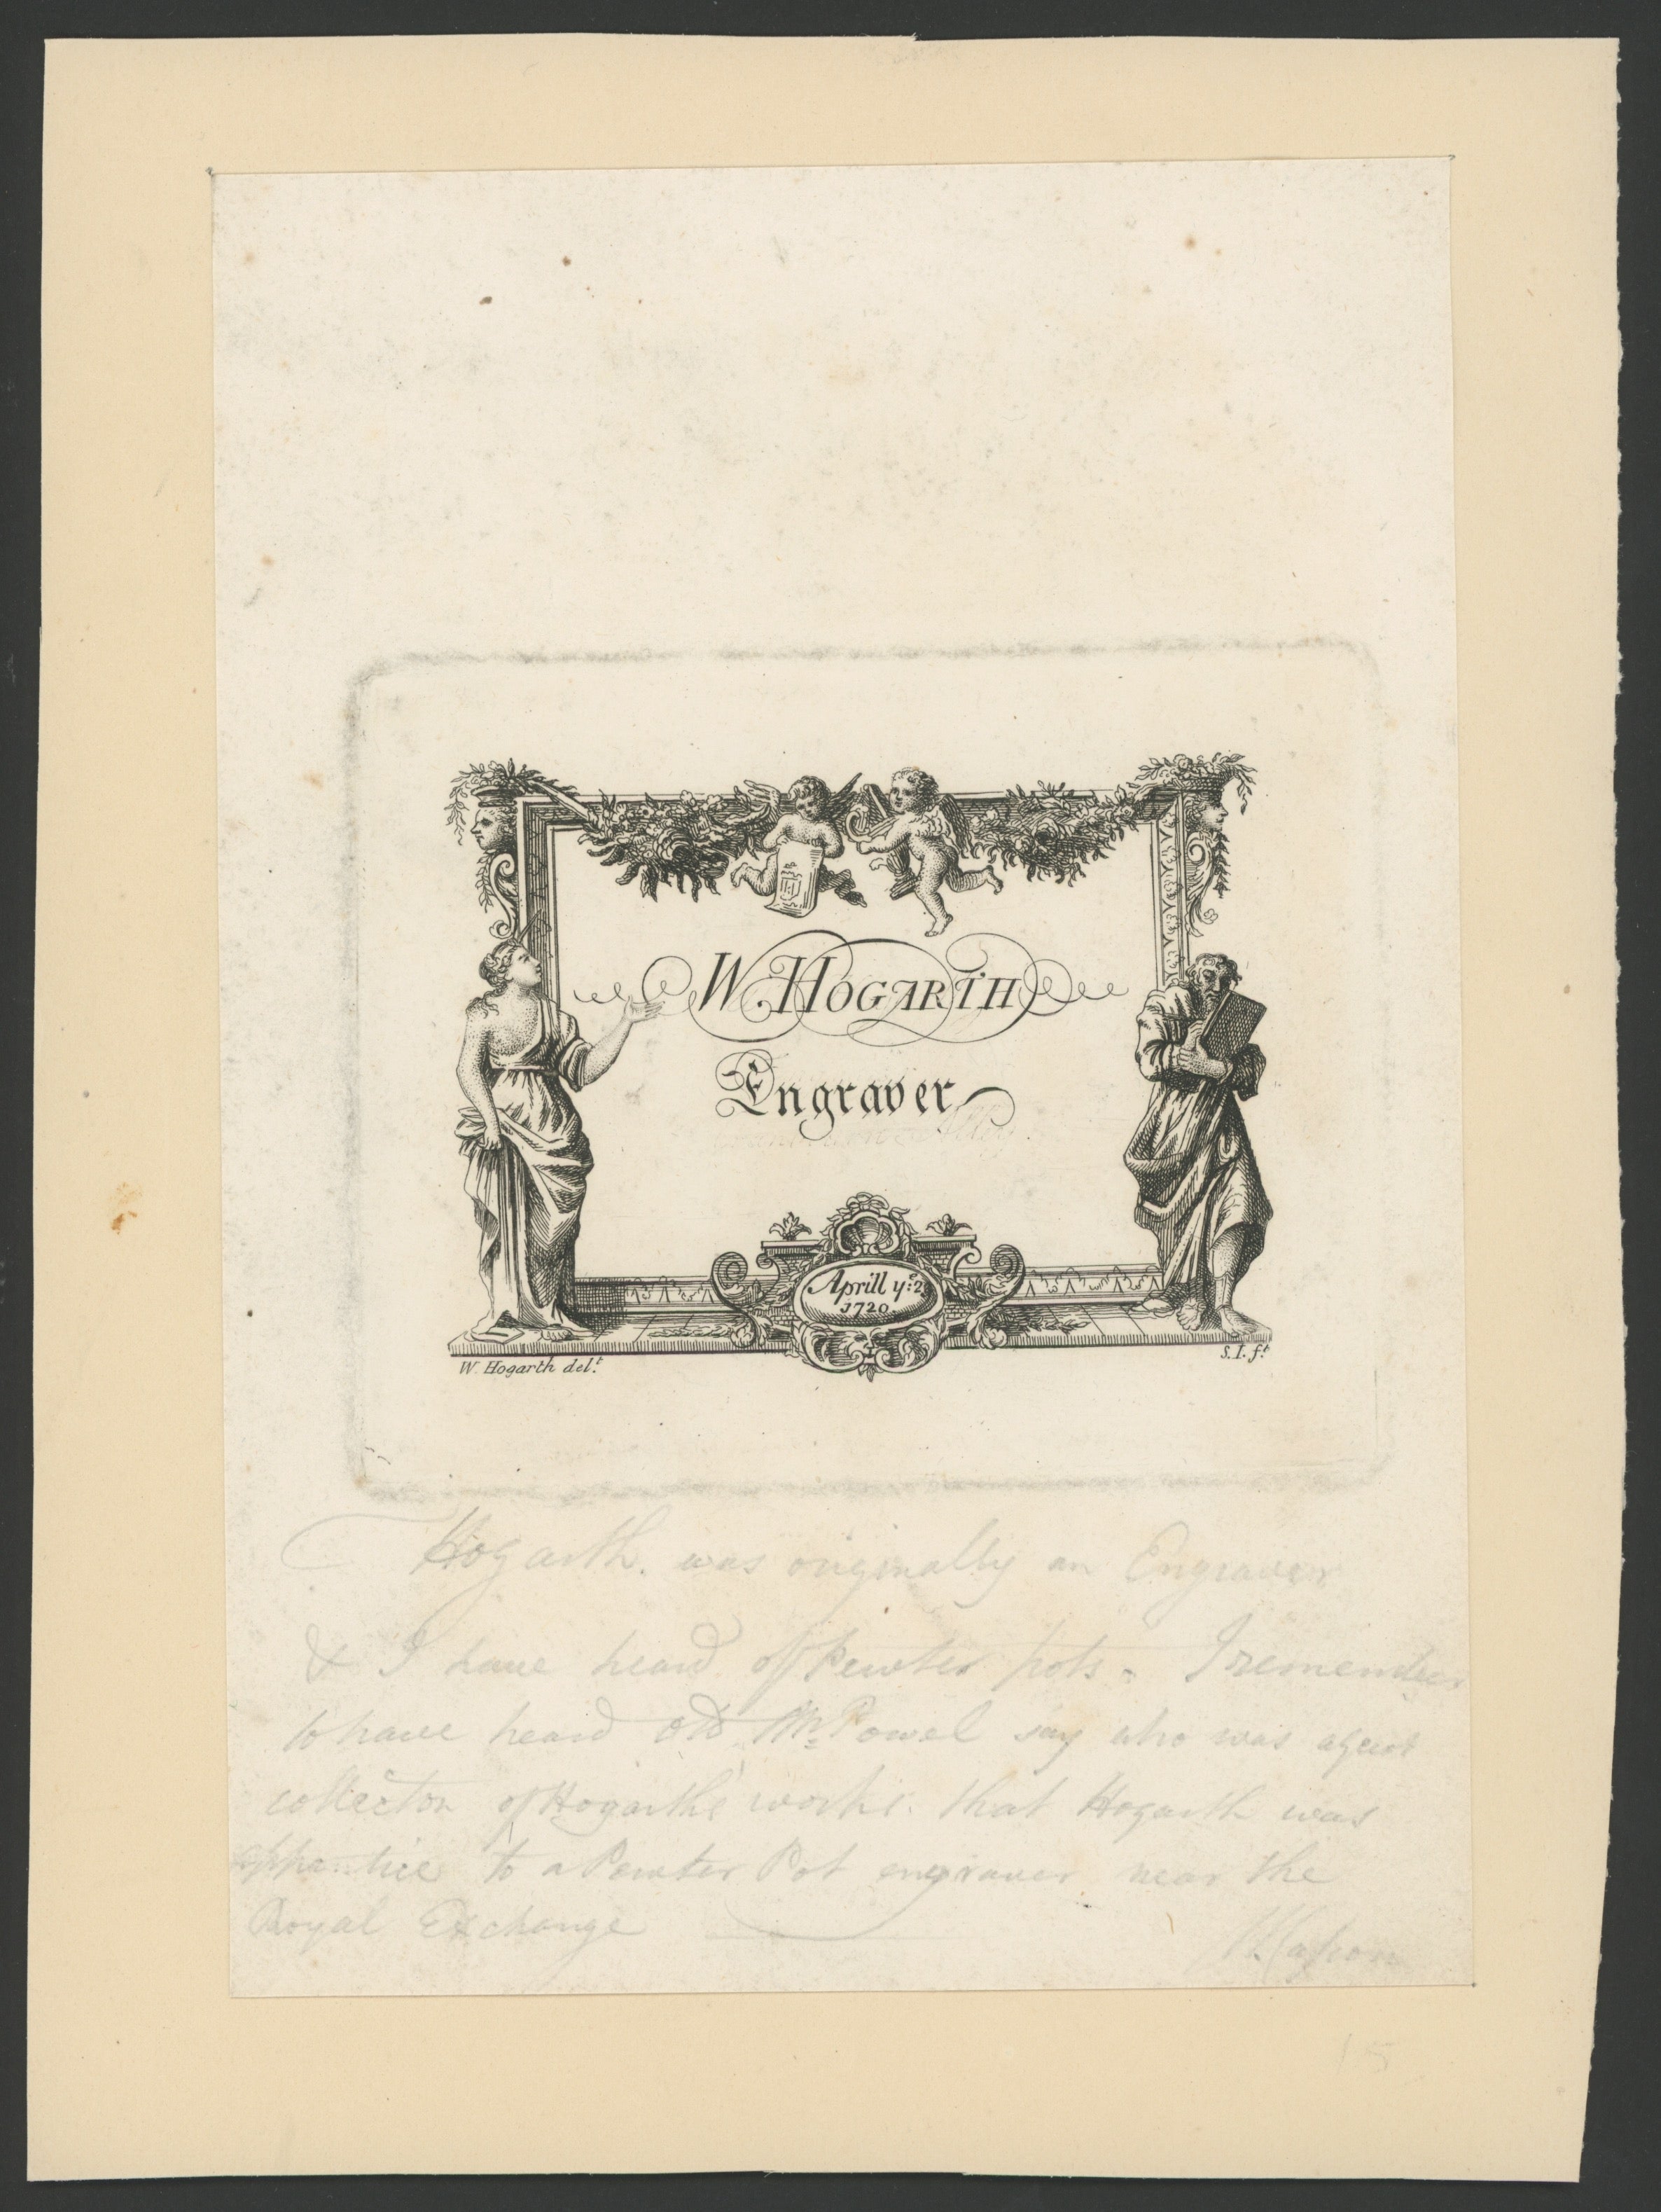 W. HOGARTH
Engraver
Aprill yᵉ: 23
1720.
W. Hogarth delᵗ.
S. I. fᵗ.
Hogarth. was originally an Engraver
& I have heard of Pewter pots - I remember
to have heard old Mr. Powel say who was a great
collector of Hogarth's works. that Hogarth was
apprentice to a Pewter Pot engraver near the
Royal Exchange
W. Capon
15